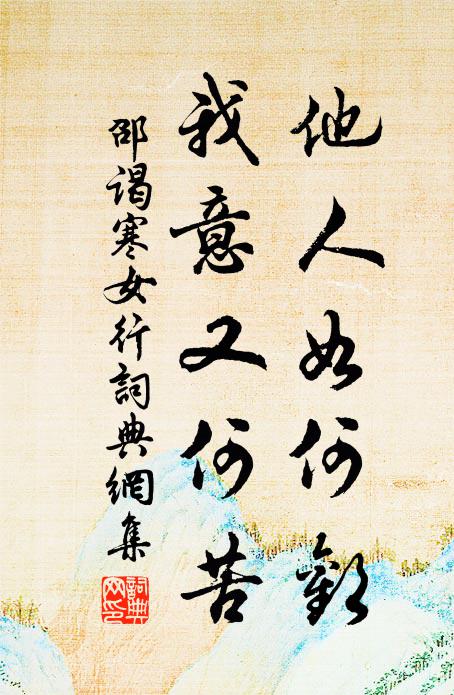 他人如何歡
我意又何苦
邵謁寒女行詞典網集
詞典網印